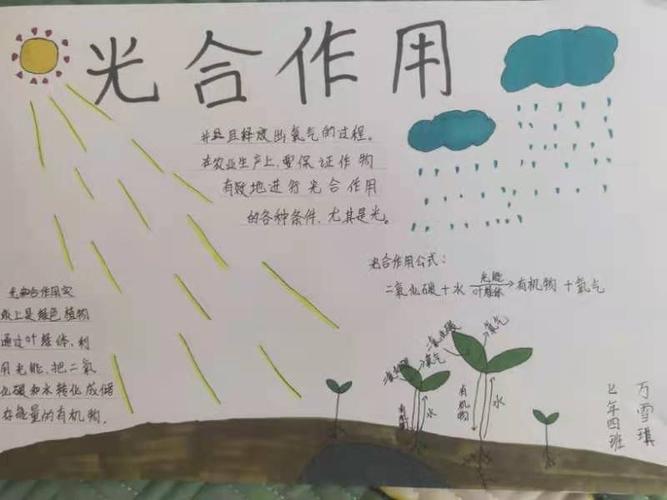 光合作用
光和合作用实
际上是绿色植物
通过叶绿体,利
用光能,把二氧
化碳和水转化成储
存能量的有机物,
并且且释放出氧气的过程。
在农业生产上,要保证作物
有效地进行光合作用
的各种条件,尤其是光。
光合作用公式:
二氧化碳+水 光能 叶绿体 →有机物+氧气
二氧化碳
氧气
有机物
水
二氧化碳
氧气
有机物
水
七年四班
万雪琪